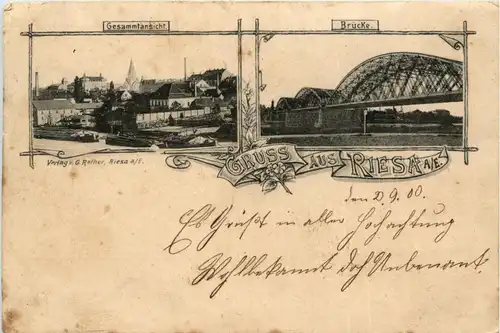 Gesammtansicht.
Brücke.
Verlag v. G. Rother, Riesa a/E.
GRUSS AUS RIESA A/E.
den 2.9.00.
Es Grüßt in aller Hochachtung
Wohlbekannt doch Unbenannt.